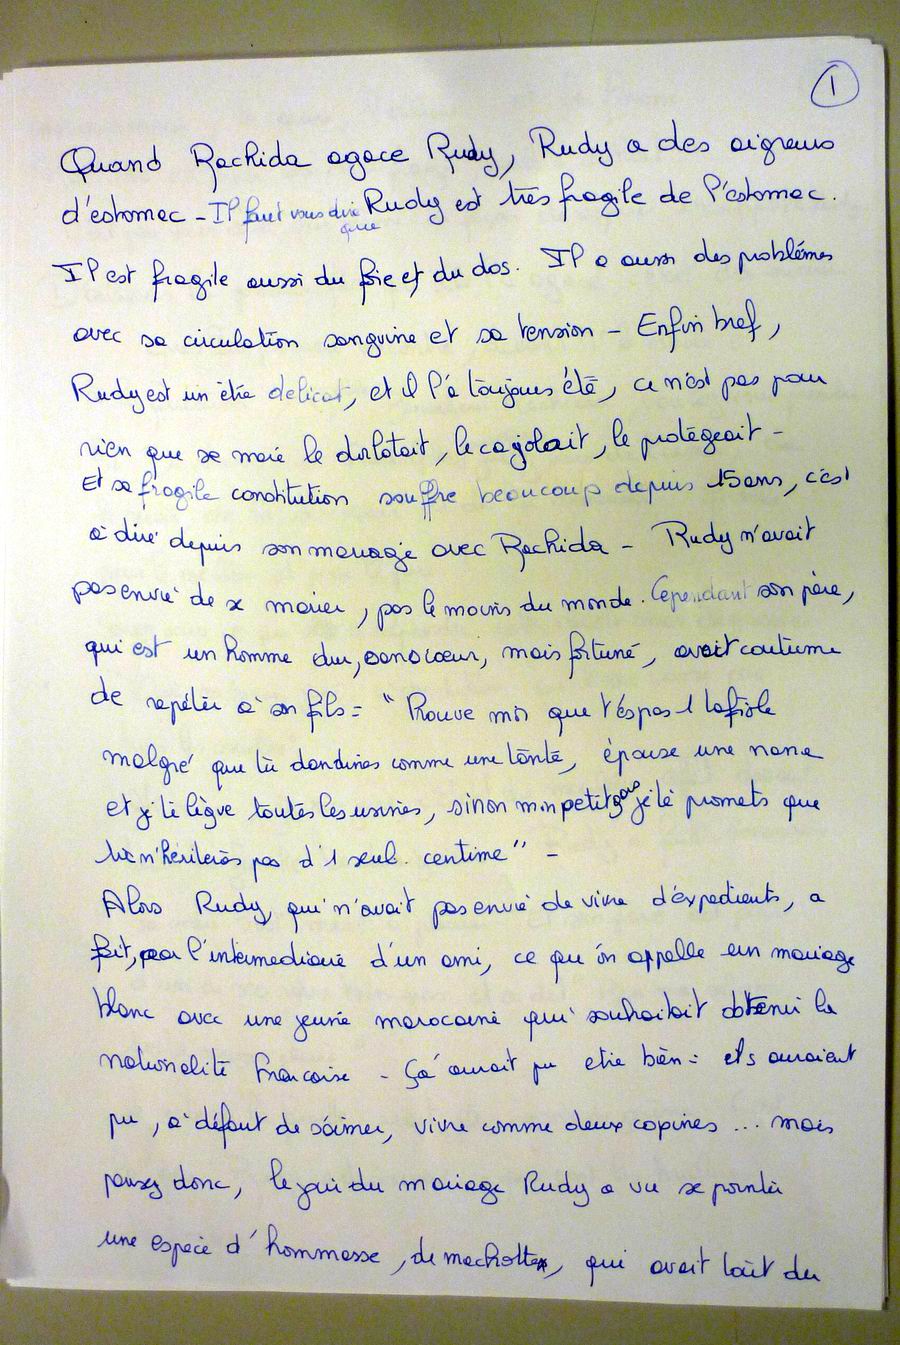 1
Quand Rachida agace Rudy, Rudy a des aigreurs
d'estomac - Il faut vous dire que Rudy est très fragile de l'estomac.
Il est fragile aussi du foie et du dos. Il a aussi des problèmes
avec sa circulation sanguine et sa tension - Enfin bref,
Rudy est un être délicat, et il l'a toujours été, ce n'est pas pour
rien que sa mère le dorlotait, le cajolait, le protégeait -
Et sa fragile constitution souffre beaucoup depuis 15 ans, c'est
à dire depuis son mariage avec Rachida - Rudy n'avait
pas envie de se marier, pas le moins du monde. Cependant son père,
qui est un homme dur, sans coeur, mais fortuné, avait coutume
de répéter à son fils : "Prouve moi que t'es pas 1 tafiole
malgré que tu dandines comme une tante, épouse une nana
et je te lègue toutes les usines, sinon mon petit gars je te promets que
tu n'hériteras pas d'1 seul centime" -
Alors Rudy, qui n'avait pas envie de vivre d'expedients, a
fait, par l'intermediaire d'un ami, ce qu'on appelle un mariage
blanc avec une jeune marocaine qui souhaitait obtenir la
nationalité française - Ça aurait pu etre bien : ils auraient
pu, à défaut de s'aimer, vivre comme deux copines ... mais
pensez donc, le jour du mariage Rudy a vu se pointer
une espèce d'hommasse, de machotte, qui avait l'air du